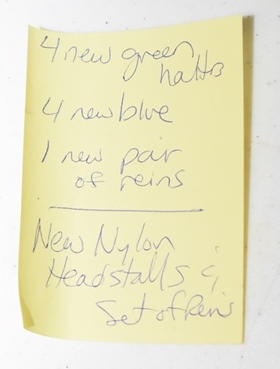 4 new green
halters
4 new blue
1 new pair
of reins
New Nylon
Headstalls &
Set of Reins